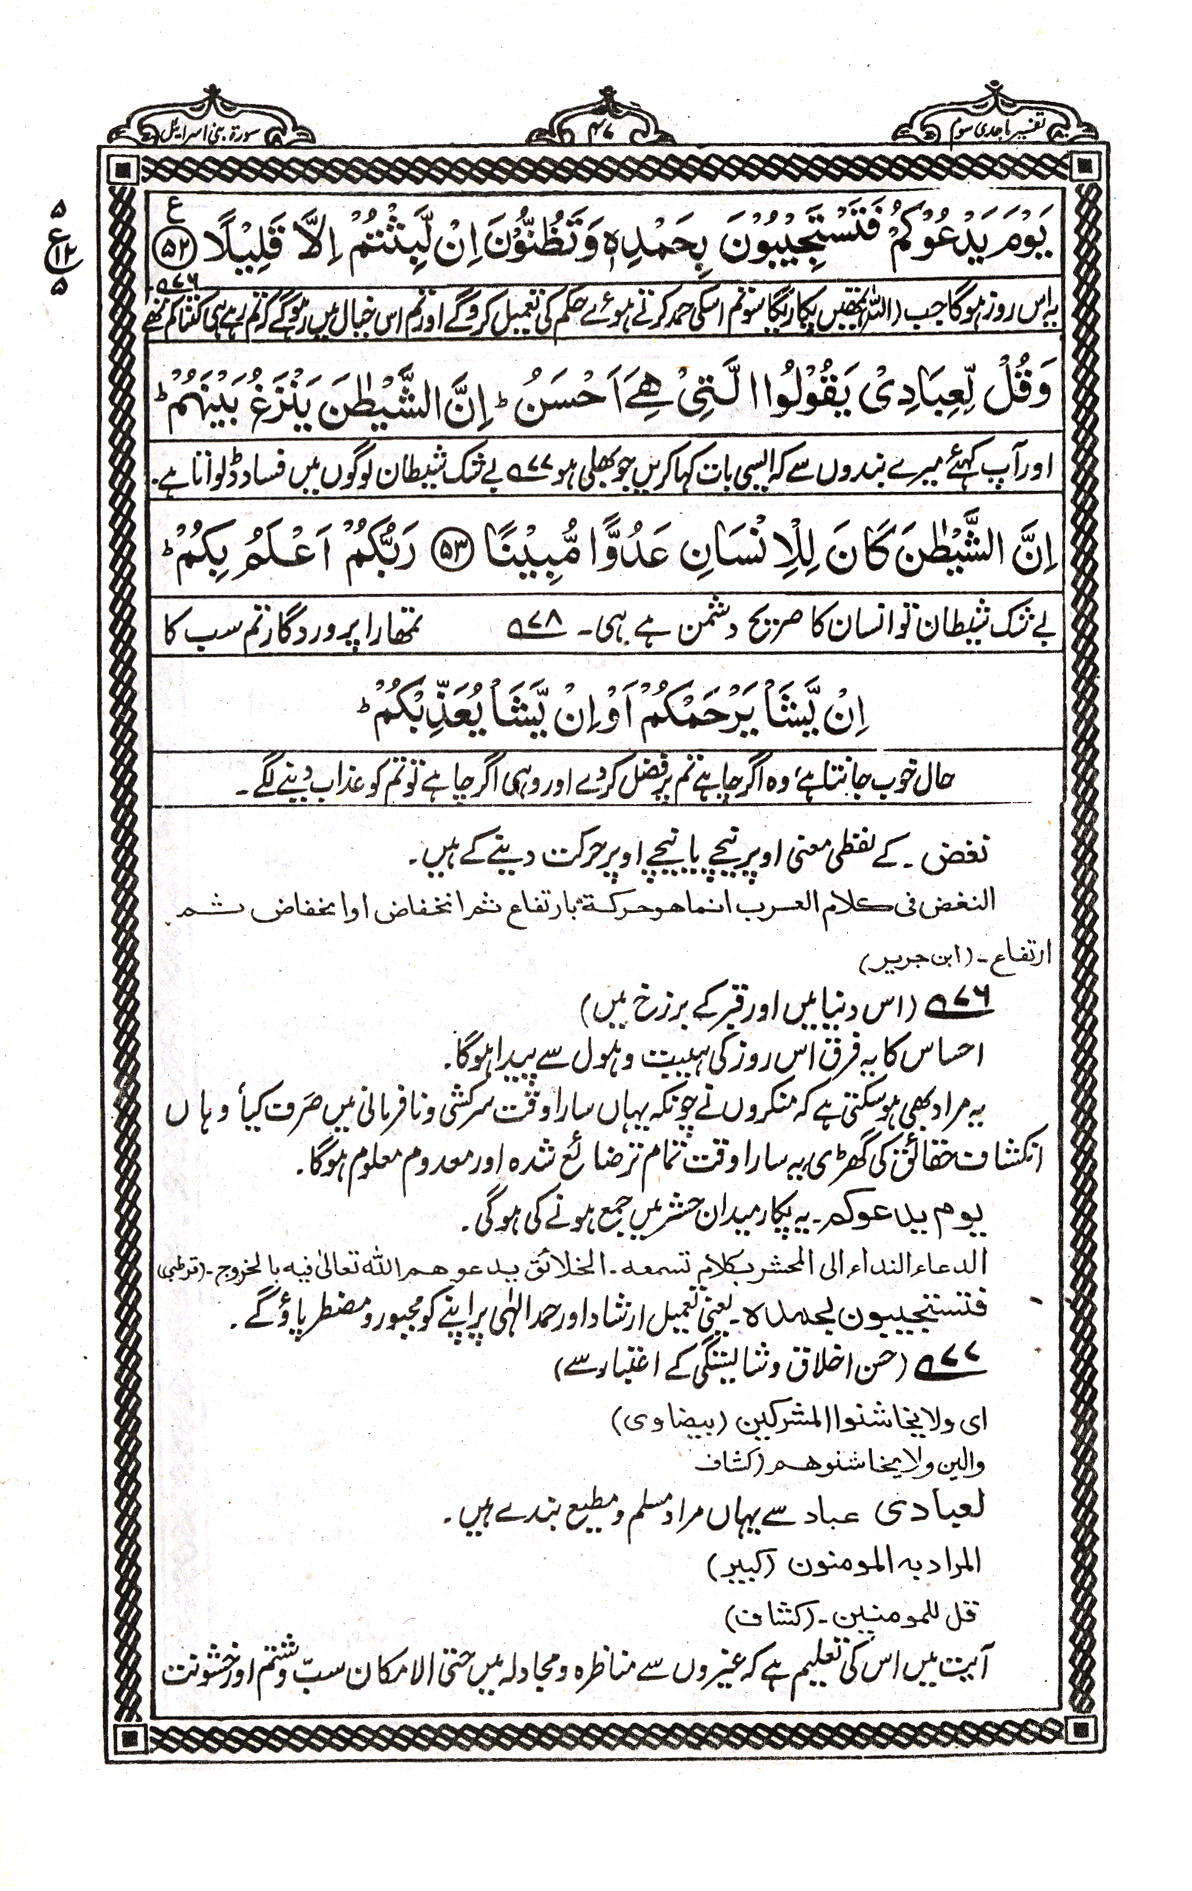 تفسیر ماجدی سوم
۴۷
سورۃ بنی اسرائیل
یَوْمَ یَدْعُوْكُمْ فَتَسْتَجِیْبُوْنَ بِحَمْدِهٖ وَتَظُنُّوْنَ اِنْ لَّبِثْتُمْ اِلَّا قَلِیْلًا ﴿۵۲﴾ ع
۵
ع
۱۲
۵
یہ اس روز ہوگا جب (اللہ) تمھیں پکاریگا سو تم اسکی حمد کرتے ہوئے حکم کی تعمیل کروگے اور تم اس خیال میں رہوگے کہ تم رہے ہی کتنا کم تھے ۹۷۶
وَقُلْ لِّعِبَادِیْ یَقُوْلُوا الَّتِیْ هِیَ اَحْسَنُ ؕ اِنَّ الشَّیْطٰنَ یَنْزَغُ بَیْنَهُمْ ؕ
اور آپ کہئے میرے بندوں سے کہ ایسی بات کہا کریں جو بھلی ہو ۹۷۷ بے شک شیطان لوگوں میں فساد ڈلواتا ہے۔
اِنَّ الشَّیْطٰنَ كَانَ لِلْاِنْسَانِ عَدُوًّا مُّبِیْنًا ﴿۵۳﴾ رَبُّكُمْ اَعْلَمُ بِكُمْ ؕ
بے شک شیطان تو انسان کا صریح دشمن ہے ہی۔ ۹۷۸ تمھارا پروردگار تم سب کا
اِنْ یَّشَاْ یَرْحَمْكُمْ اَوْ اِنْ یَّشَاْ یُعَذِّبْكُمْ ؕ
حال خوب جانتا ہے، وہ اگر چاہے تم پر فضل کردے اور وہی اگر چاہے تو تم کو عذاب دینے لگے۔
نغض۔ کے لفظی معنی اوپر نیچے یا نیچے اوپر حرکت دینے کے ہیں۔
النغض فی کلام العرب انما ھو حرکۃ بارتفاع ثم انخفاض او انخفاض ثم
ارتفاع۔ (ابن جریر)
۹۷۶ (اس دنیا میں اور قبر کے برزخ میں)
احساس کا یہ فرق اس روز کی ہیبت و ہول سے پیدا ہوگا۔
یہ مراد بھی ہوسکتی ہے کہ منکروں نے چونکہ یہاں سارا وقت سرکشی و نافرمانی میں صَرف کیا، وہاں
انکشاف حقائق کی گھڑی، یہ سارا وقت تمام تر ضائع شدہ اور معدوم معلوم ہوگا۔
یوم یدعوکم۔ یہ پکار میدان حشر میں جمع ہونے کی ہوگی۔
الدعاء النداء الی المحشر بکلام تسمعہ۔ الخلائق یدعوھم اللہ تعالیٰ فیہ بالخروج۔ (قرطبی)
فتستجیبون بحمدہ۔ یعنی تعمیل ارشاد اور حمد الٰہی پر اپنے کو مجبور و مضطر پاؤگے۔
۹۷۷ (حسن اخلاق و شائستگی کے اعتبار سے)
ای ولا یخاشنوا المشرکین (بیضاوی)
والین ولا یخاشنوھم (کشاف
لعبادی عباد سے یہاں مراد مسلم و مطیع بندے ہیں۔
المراد بہ المومنون (کبیر)
قل للمومنین۔ (کشاف)
آیت میں اس کی تعلیم ہے کہ غیروں سے مناظرہ و مجادلہ میں حتی الامکان سبّ و شتم اور خشونت